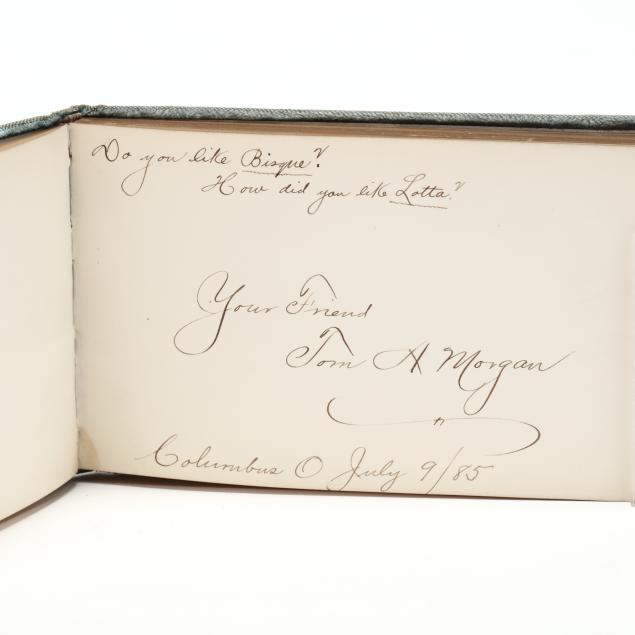 Do you like Bisque?
How did you like Lotta?
Your Friend
Tom A Morgan
Columbus O July 9/85